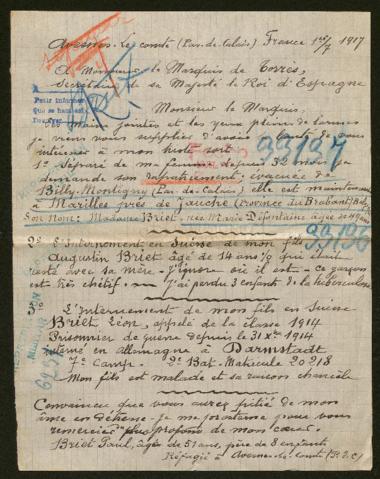 Avesnes-le-comte (Pas-de-Calais) France 1er/7 1917
A Monsieur le Marquis de Torrès,
Secrétaire de sa Majesté le Roi d'Espagne
Monsieur le Marquis,
Les mains jointes et les yeux pleins de larmes
je viens vous supplier d'avoir la bonté de vous
intéresser à mon triste sort
99197
1° Séparé de ma famille depuis 32 mois je
demande son rapatriement: évacuée de
Billy-Montigny (Pas-de-Calais) elle est maintenant
à Marilles près de Jauche (Province du Brabant)
Son Nom: Madame Briet, née Marie Defontaine âgée de 49 ans
99196
2° L'internement en Suisse de mon fils
Augustin Briet âgé de 14 ans ½ qui était
resté avec sa mère - j'ignore où il est - ce garçon
est très chétif. - J'ai perdu 3 enfants de la tuberculose
3° L'Internement de mon fils en Suisse
Briet, Léon, appelé de la classe 1914
Prisonnier de guerre depuis le 31 Xbre 1914
interné en Allemagne à Darmstadt
7e Camp. 2e Bat- Matricule 20218
Mon fils est malade et sa raison chancelle
Convaincu que vous aurez pitié de mon
âme en détresse je me prosterne pour vous
remercier du plus profond de mon cœur.
Briet Paul, âgé de 51 ans, père de 8 enfants
Réfugié à Avesnes-le-Comte (P.d.C)